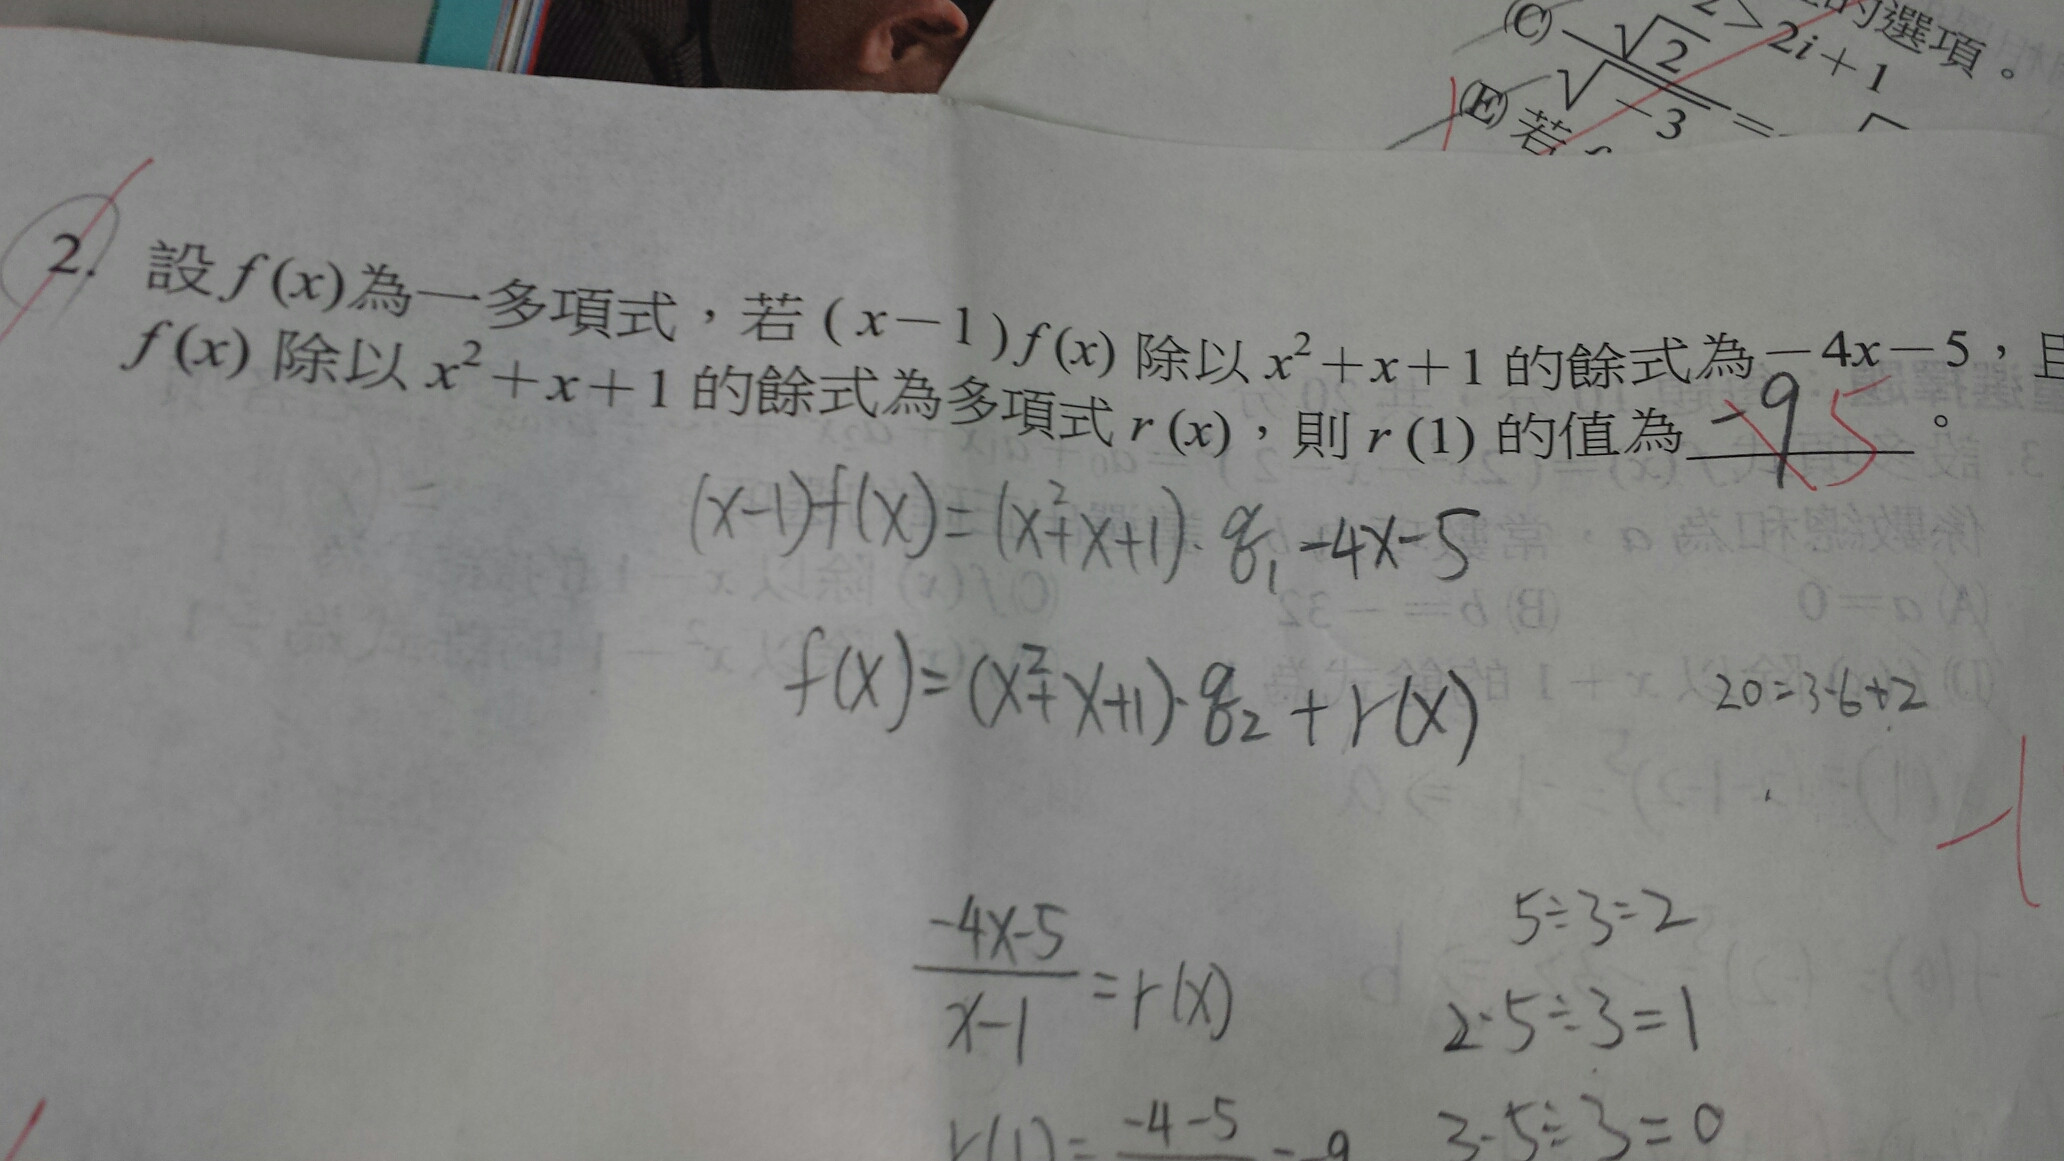 的選項。
2 > 2i+1
(C) √2
√-3 =
(E) 若
2. 設 f(x) 為一多項式，若 (x-1)f(x) 除以 x²+x+1 的餘式為 -4x-5，且
f(x) 除以 x²+x+1 的餘式為多項式 r(x)，則 r(1) 的值為 -9 5 。
(x-1)f(x)=(x²+x+1)·q₁-4x-5
f(x)=(x²+x+1)·q₂+r(x)
20=3·6+2
-4x-5
x-1 =r(x)
5÷3=2
2·5÷3=1
r(1)= -4-5 =-9
3·5÷3=0